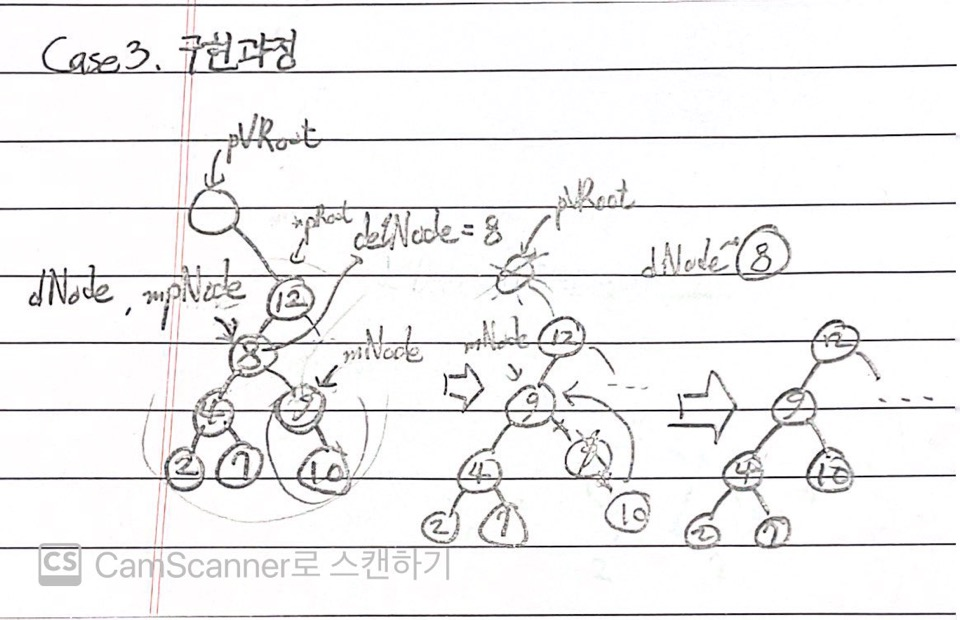 Case 3. 구현과정
pVRoot
pRoot
delNode = 8
pVRoot
dNode → 8
dNode, mpNode
12
8
mNode
mNode
12
12
4
9
9
9
2
7
10
4
9
4
10
2
7
10
2
7
CS CamScanner로 스캔하기